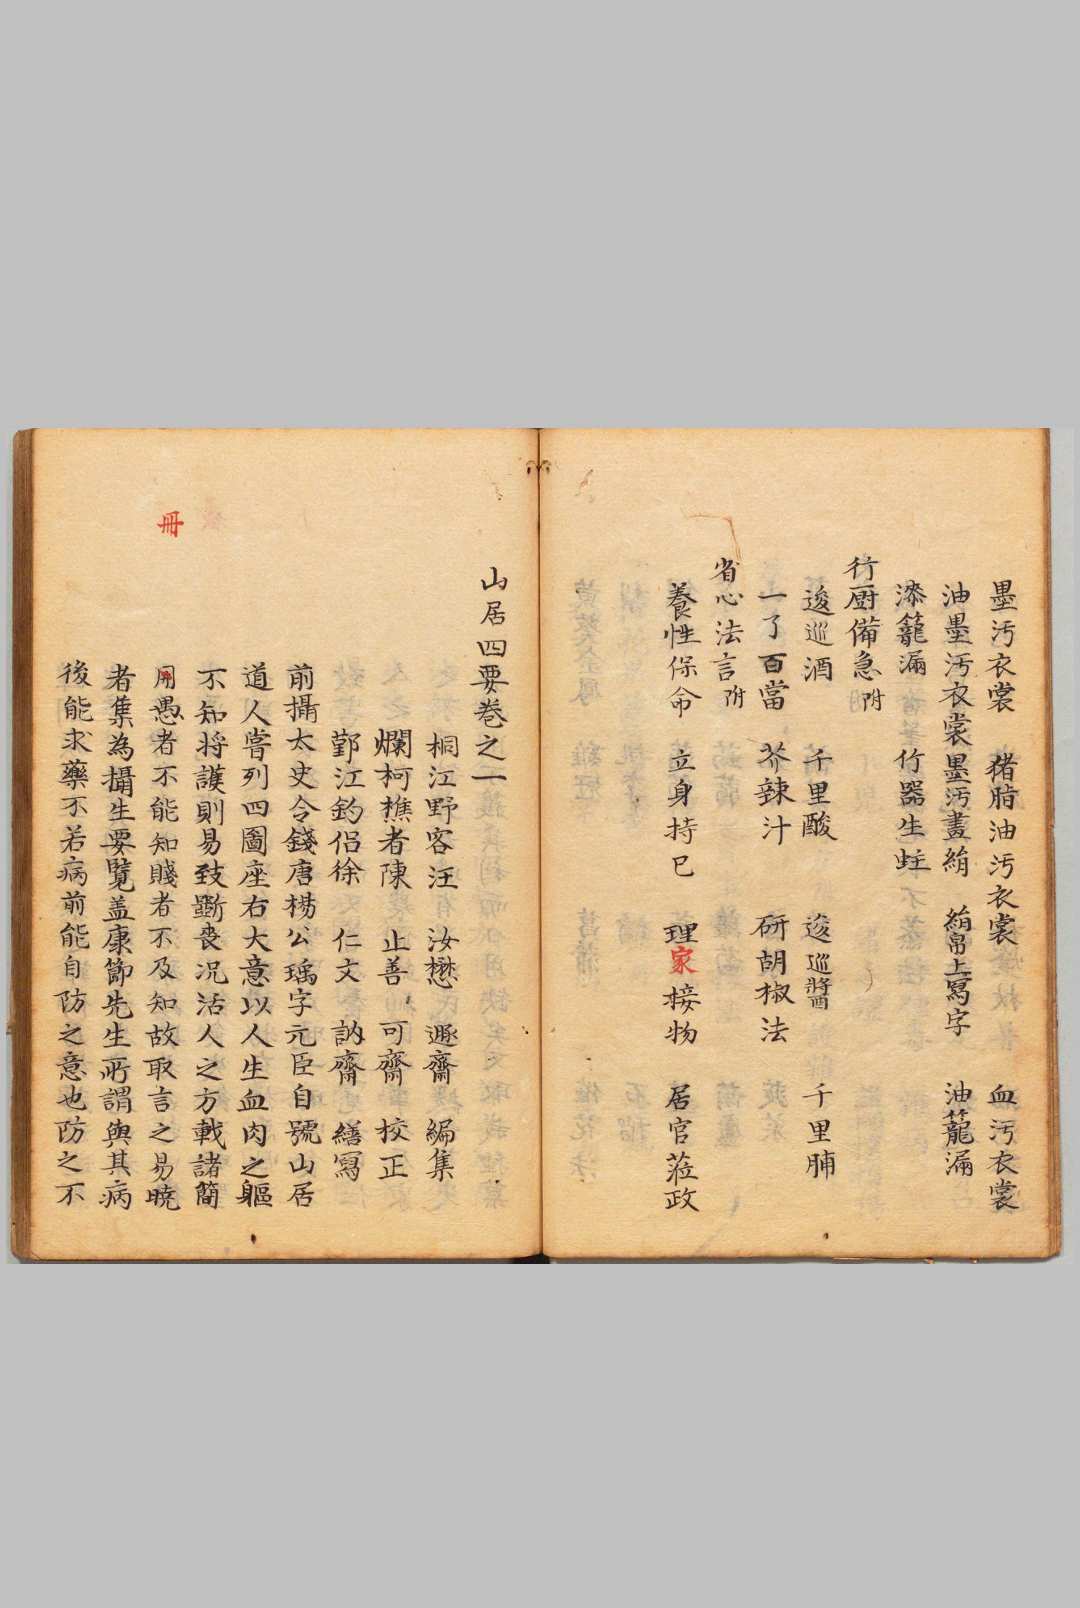 墨汚衣裳 猪脂油汚衣裳 血汚衣裳
油墨汚衣裳墨汚畫絹 絹帛上寫字 油籠漏
漆籠漏 竹器生蛀
行厨備急附
逡巡酒 千里酸 逡巡醬 千里脯
一了百當 芥辣汁 研胡椒法
省心法言附
養性保命 立身持已 理家接物 居官蒞政
山居四要卷之一
桐江野客汪 汝懋 遯齋 編集
爛柯樵者陳 止善 可齋 校正
鄞江釣侶徐 仁文 訥齋 繕寫
前攝太史令錢唐楊公瑀字元臣自號山居
道人甞列四圖座右大意以人生血肉之軀
不知将護則易致斵喪况活人之方載諸簡
冊
用愚者不能知賤者不及知故取言之易曉
者集為攝生要覽盖康節先生所謂與其病
後能求藥不若病前能自防之意也防之不